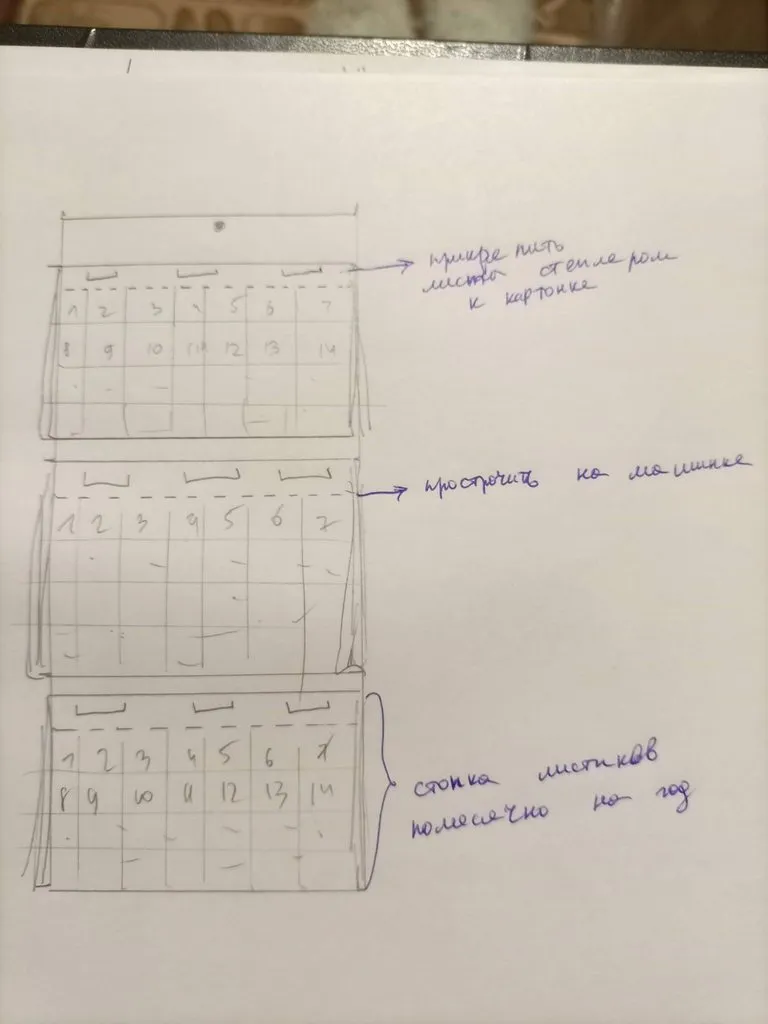 прикрепить
листы степлером
к картонке
1 2 3 4 5 6 7
8 9 10 11 12 13 14
прострочить на машинке
1 2 3 4 5 6 7
1 2 3 4 5 6 7
8 9 10 11 12 13 14
стопка листиков
помесячно на год